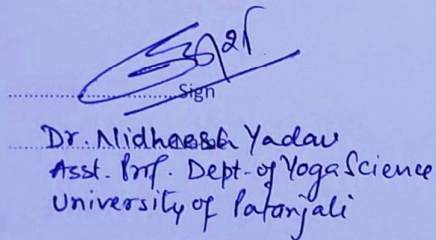 Sign
Dr. Nidheesh Yadav
Asst. Prof. Dept. of Yoga Science
University of Patanjali